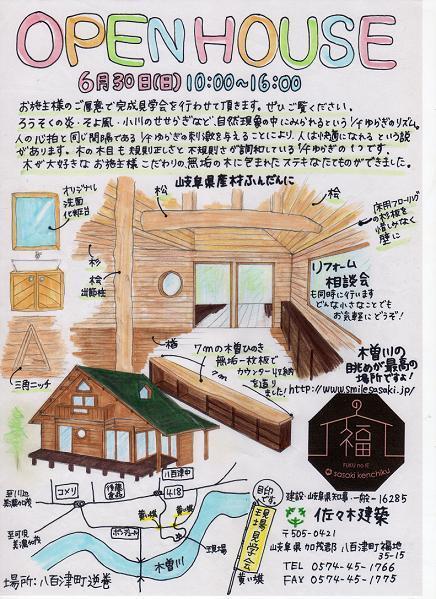 OPEN HOUSE
6月30日(日) 10:00～16:00
お施主様のご厚意で完成見学会を行わせて頂きます。ぜひご覧ください。
ろうそくの炎・そよ風・小川のせせらぎなど、自然現象の中にみられるという1/fゆらぎのリズム。
人の心拍と同じ間隔である1/fゆらぎの刺激を与えることにより、人は快適になれるという説
があります。木の木目も規則正しさと不規則さが調和している1/fゆらぎの1つです。
木が大好きなお施主様こだわりの、無垢の木に包まれたステキなたてものができました。
岐阜県産材ふんだんに
オリジナル
洗面
化粧台
松
桧
床用フローリング
の杉板を
惜しみなく
壁に
杉
桧
出節柱
リフォーム
相談会
も同時に行います
どんな小さなことでも
お気軽にどうぞ!
三角ニッチ
7mの木曽ひのき
無垢一枚板で
カウンター4丈納
を造り
ました!
木曽川の
眺めが最高の
場所ですよ!
http://www.smilesasaki.jp/
の
福
FUKU no IE
sasaki kenchiku
建設・岐阜県知事・一般-16285
佐々木建築
〒505-0421
岐阜県加茂郡八百津町福地
35-15
TEL 0574-45-1766
FAX 0574-45-1775
コメリ
八百津中
418
木曽川
現場
黄い旗
目印
です。
現場見学会
黄い旗
場所:八百津町逆巻